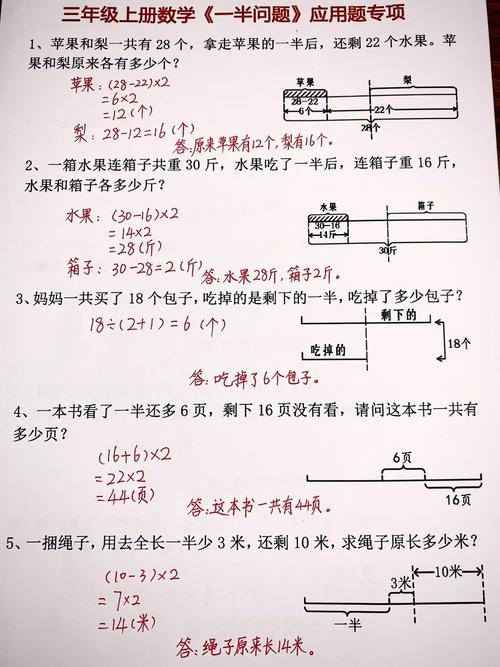 三年级上册数学《一半问题》应用题专项
1、苹果和梨一共有28个，拿走苹果的一半后，还剩22个水果。苹
果和梨原来各有多少个？
苹果：(28-22)×2
=6×2
=12(个)
梨：28-12=16(个)
答:原来苹果有12个,梨有16个。
苹果
梨
28-22
6个
22个
28个
2、一箱水果连箱子共重30斤，水果吃了一半后，连箱子重16斤，
水果和箱子各多少斤？
水果：(30-16)×2
=14×2
=28(斤)
箱子：30-28=2(斤)
答:水果28斤,箱子2斤。
水果
箱子
30-16
14斤
30斤
3、妈妈一共买了18个包子，吃掉的是剩下的一半，吃掉了多少包子？
18÷(2+1)=6(个)
答:吃掉了6个包子。
剩下的
吃掉的
18个
4、一本书看了一半还多6页，剩下16页没有看，请问这本书一共有
多少页？
(16+6)×2
=22×2
=44(页)
答:这本书一共有44页。
6页
16页
5、一捆绳子，用去全长一半少3米，还剩10米，求绳子原长多少米？
(10-3)×2
=7×2
=14(米)
答:绳子原来长14米。
10米
3米
一半